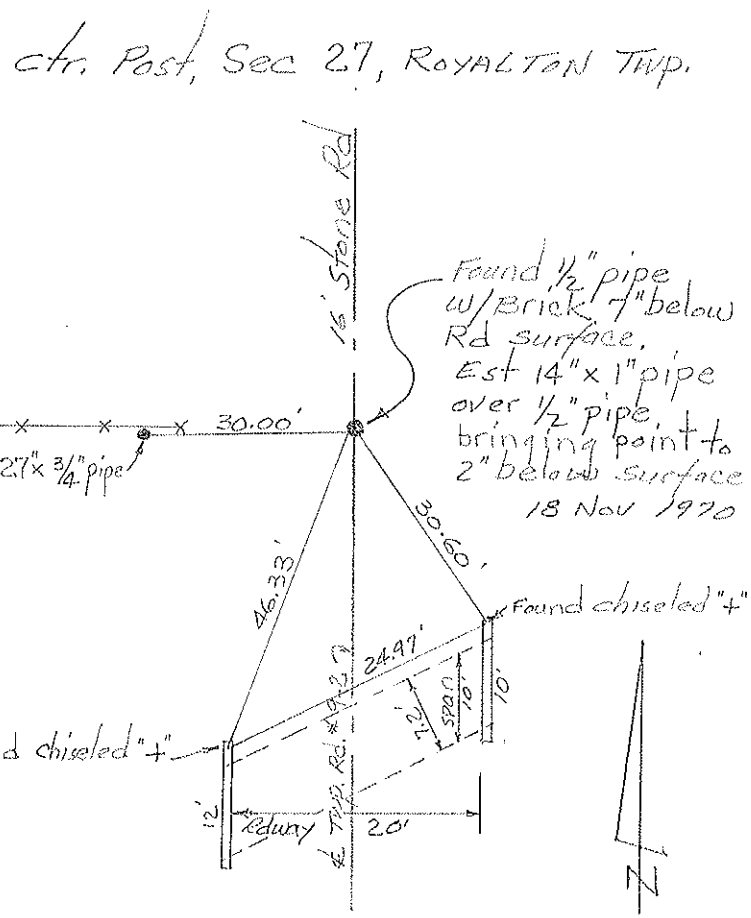 ctr. Post, Sec 27, ROYALTON TWP.
16' Stone Rd
Found 1/2" pipe
w/ Brick 7" below
Rd surface.
Est 14" x 1" pipe
over 1/2" pipe
bringing point to
2" below surface
18 Nov 1970
30.00'
27" x 3/4" pipe
46.33'
30.60'
Found chiseled "+"
24.97'
7.2'
span
10'
10'
d chiseled "+"
12'
Rdway
20'
℄ Twp. Rd.
N